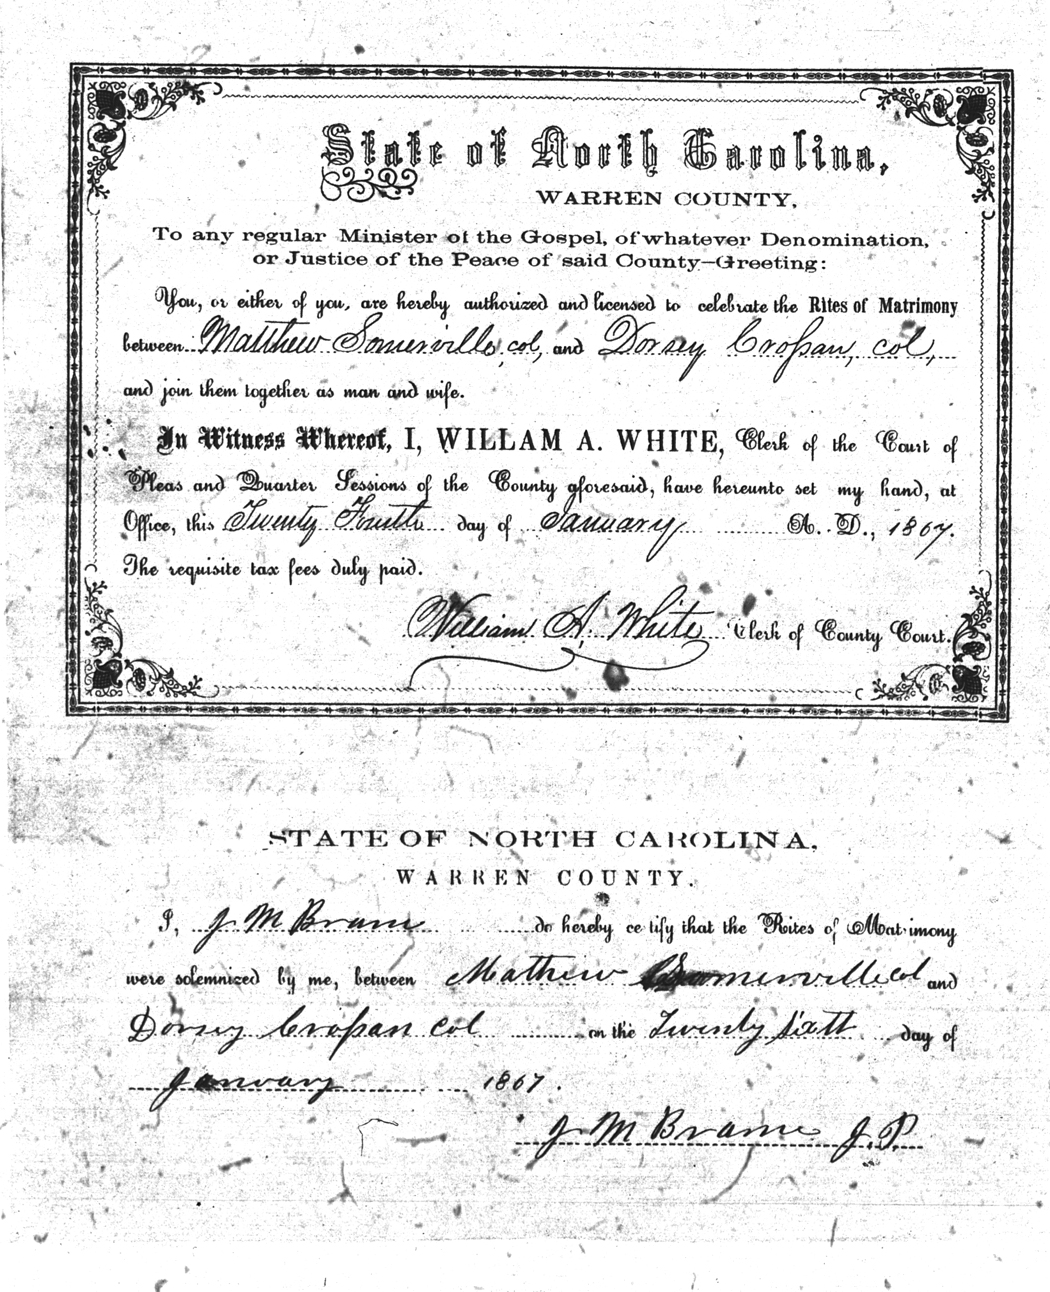 State of North Carolina,
WARREN COUNTY,
To any regular Minister of the Gospel, of whatever Denomination,
or Justice of the Peace of said County—Greeting:
You, or either of you, are hereby authorized and licensed to celebrate the Rites of Matrimony
between Matthew Somerville, col, and Dorsey Croſsan, col,
and join them together as man and wife.
In Witness Whereof, I, WILLAM A. WHITE, Clerk of the Court of
Pleas and Quarter Sessions of the County aforesaid, have hereunto set my hand, at
Office, this Twenty day of January A. D., 1867.
The requisite tax fees duly paid.
William A. White Clerk of County Court.
STATE OF NORTH CAROLINA,
WARREN COUNTY.
I, J M Brame do hereby certify that the Rites of Matrimony
were solemnized by me, between Mathew Somerville col and
Dorsey Croſsan col on the Twenty sixth day of
January 1867.
J M Brame J.P.